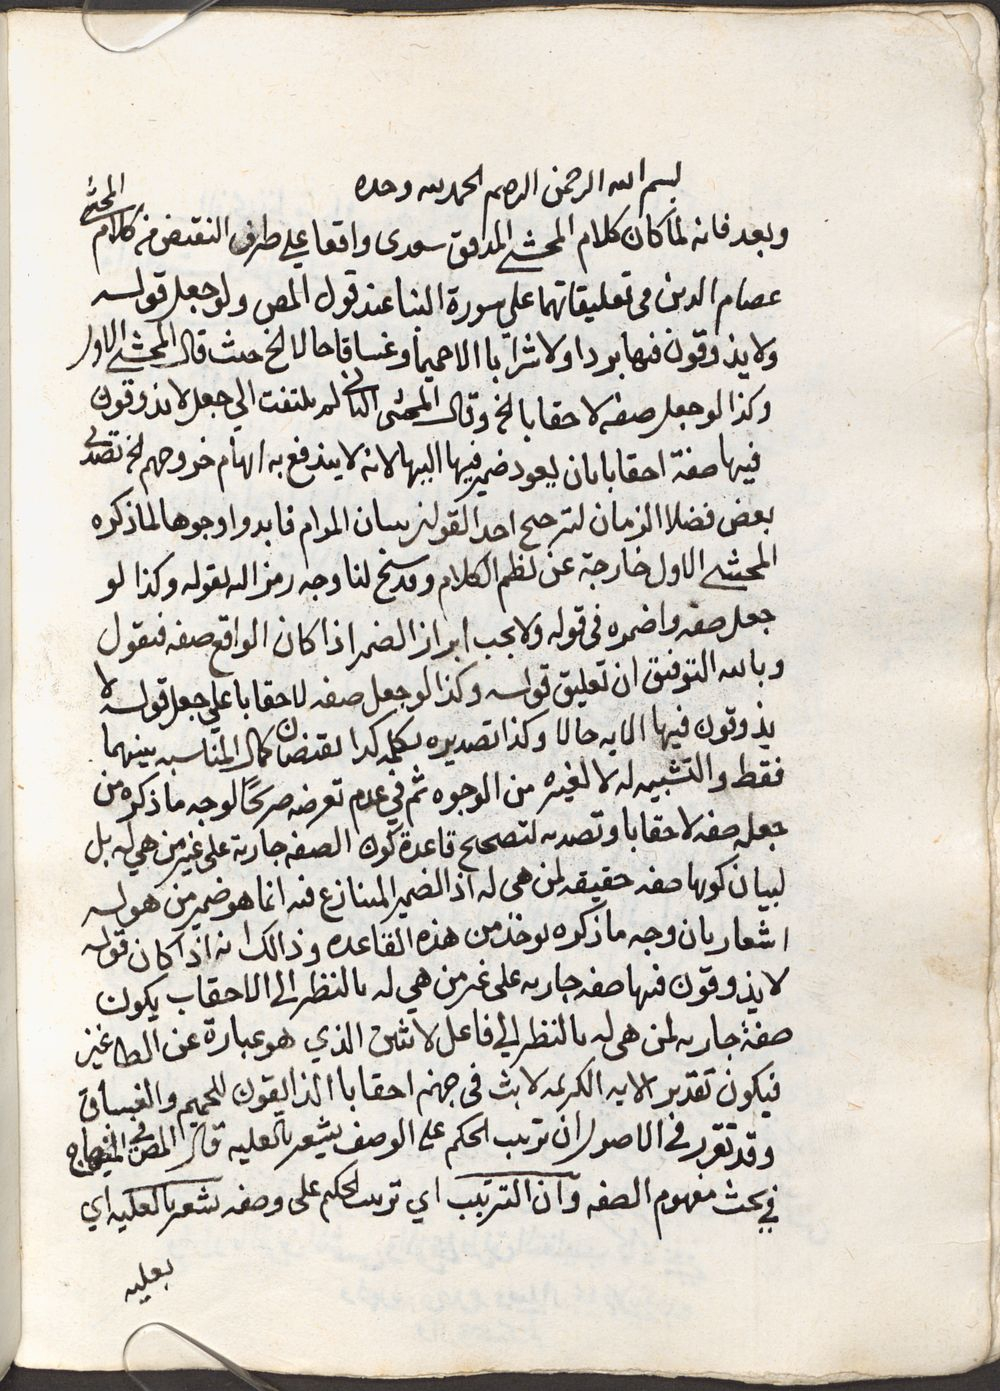 بسم الله الرحمن الرحيم الحمد لله وحده
وبعد فانه لما كان كلام المحشي المدقق سعدى واقعا علي طرف النقيض من كلام المحشي
عصام الدين في تعليقاتهما علي سورة النبا عند قول المص ولو جعل قوله
ولا يذوقون فيها بردا ولا شرابا الا حميما وغساقا حالا الخ حيث قال المحشي الاول
وكذا لو جعل صفه لاحقابا الخ وقال المحشى الثاني لم يلتفت الي جعل لا يذوقون
فيها صفة احقابا بان يعود ضمير فيها اليها لانه لا يندفع به ايهام خروجهم الخ تصدى
بعض فضلا الزمان لترجيح احد القولين ببيان المرام فابدوا وجوها لما ذكره
المحشي الاول خارجة عن نظم الكلام وقد سنح لنا وجه رمز اليه بقوله وكذا لو
جعل صفه واضمره في قوله ولا يجب ابراز الضمير اذا كان الواقع صفه فنقول
وبالله التوفيق ان تعليق قوله وكذا لو جعل صفه لاحقابا علي جعل قوله لا
يذوقون فيها الايه حالا وكذا تصديره بكلمه كذا يقتضيان كمال المناسبه بينهما
فقط والتشبيه له لا لغيره من الوجوه ثم في عدم تعرضه صريحا لوجه ما ذكره من
جعله صفه لاحقابا وتصديه لتصحيح قاعدة كون الصفه جارية على غير من هي له بل
لبيان كونها صفه حقيقه لمن هى له اذ الضمير المتنازع فيه انما هو ضمير من هو له
اشعار بان وجه ما ذكره يوخذ من هذه القاعده وذالك انه اذا كان قوله
لا يذوقون فيها صفه جاريه على غير من هي له بالنظر الي الاحقاب يكون
صفة جاريه لمن هى له بالنظر الي فاعل لابثين الذي هو عبارة عن الطاغين
فيكون تقدير الايه الكريمه لابث فى جهنم احقابا الذايقون للحميم والغساق
وقد تقرر في الاصول ان ترتيب الحكم علي الوصف يشعر بالعليه قال المص في المنهاج
في بحث مفهوم الصفه وان الترتيب اي ترتيب الحكم على وصفه يشعر بالعليه اي
بعليه